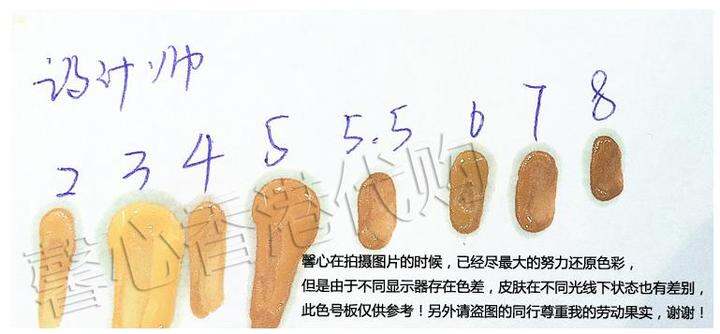 设计师
2 3 4 5 5.5 6 7 8
馨心香港代购
馨心在拍摄图片的时候，已经尽最大的努力还原色彩，
但是由于不同显示器存在色差，皮肤在不同光线下状态也有差别，
此色号板仅供参考！另外请盗图的同行尊重我的劳动果实，谢谢！